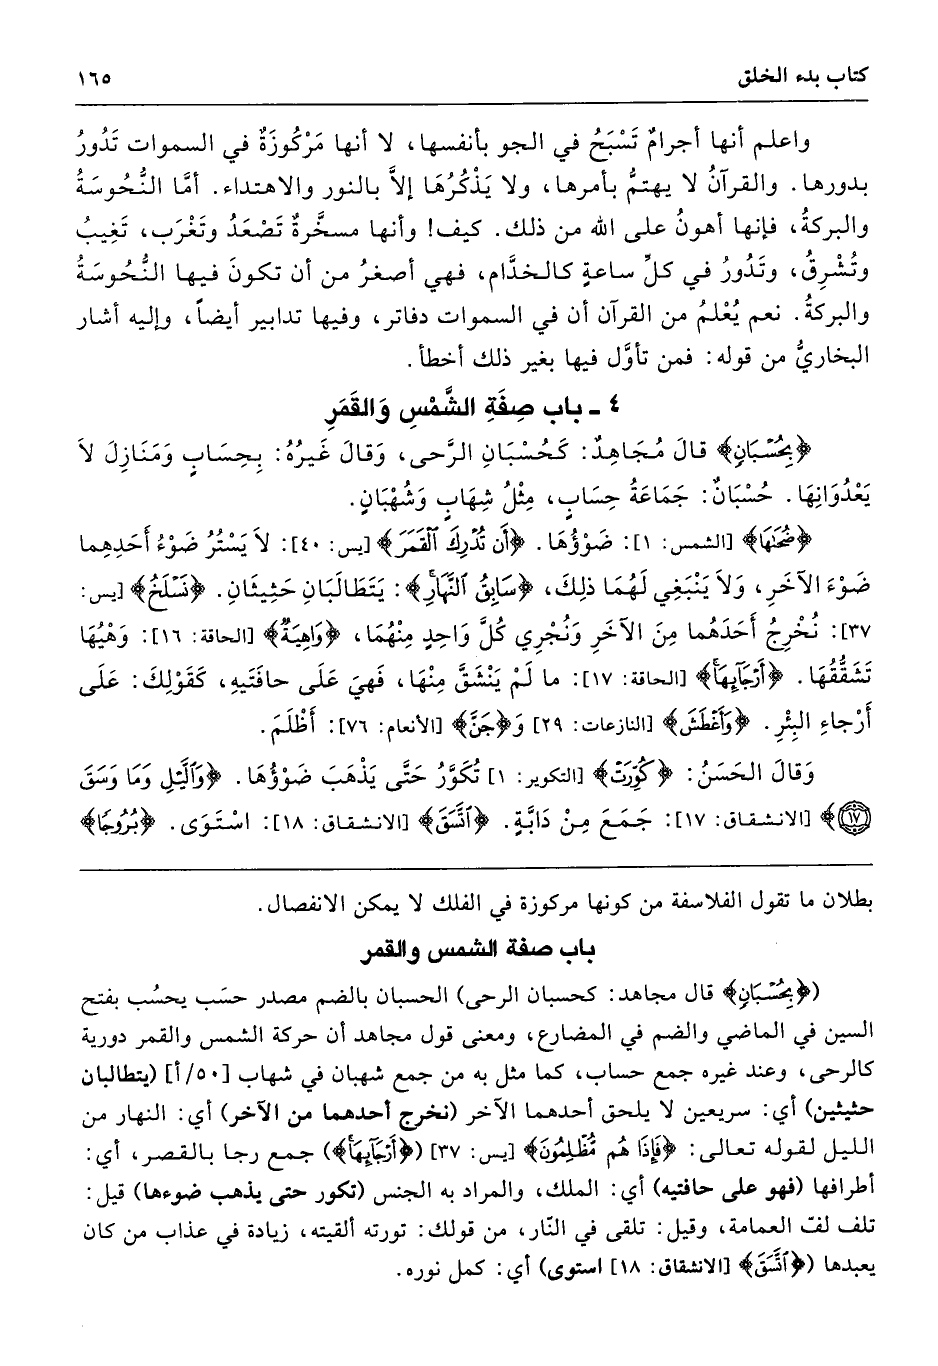 كتاب بدء الخلق ١٦٥
واعلم أنها أجرامٌ تَسْبَحُ في الجو بأنفسها، لا أنها مَرْكُوزَةٌ في السموات تَدُورُ
بدورها. والقرآنُ لا يهتمُّ بأمرها، ولا يَذْكُرُهَا إلاَّ بالنور والاهتداء. أمَّا النُّحُوسَةُ
والبركةُ، فإنها أهونُ على الله من ذلك. كيف! وأنها مسخَّرةٌ تَصْعَدُ وتَغْرَب، تَغِيبُ
وتُشْرِقُ، وتَدُورُ في كلِّ ساعةٍ كالخدَّام، فهي أصغرُ من أن تكونَ فيها النُّحُوسَةُ
والبركةُ. نعم يُعْلمُ من القرآن أن في السموات دفاتر، وفيها تدابير أيضاً، وإليه أشار
البخاريُّ من قوله: فمن تأوَّل فيها بغير ذلك أخطأ.
٤ ـ باب صِفَةِ الشَّمْسِ وَالقَمَرِ
﴿بِحُسْبَانٍ﴾ قالَ مُجَاهِدٌ: كَحُسْبَانِ الرَّحى، وَقالَ غَيرُهُ: بِحِسَابٍ وَمَنَازِلَ لاَ
يَعْدُوَانِهَا. حُسْبَانٌ: جَمَاعَةُ حِسَابٍ، مِثْلُ شِهَابٍ وَشُهْبَانٍ.
﴿ضُحَىٰهَا﴾ [الشمس: ١]: ضَوْؤُهَا. ﴿أَن تُدْرِكَ ٱلْقَمَرَ﴾ [يس: ٤٠]: لاَ يَسْتُرُ ضَوْءُ أَحَدِهِما
ضَوْءَ الآخَرِ، وَلاَ يَنْبَغِي لَهُمَا ذلِكَ، ﴿سَابِقُ ٱلنَّهَارِ﴾: يَتَطَالَبَانِ حَثِيثَانِ. ﴿نَسْلَخُ﴾ [يس:
٣٧]: نُخْرِجُ أَحَدَهُما مِنَ الآخَرِ وَنُجْرِي كُلَّ وَاحِدٍ مِنْهُمَا، ﴿وَاهِيَةٌ﴾ [الحاقة: ١٦]: وَهْيُهَا
تَشَقُّقُهَا. ﴿أَرْجَآئِهَا﴾ [الحاقة: ١٧]: ما لَمْ يَنْشَقَّ مِنْهَا، فَهيَ عَلَى حافَتَيهِ، كَقَوْلِكَ: عَلَى
أَرْجاءِ البِئْرِ. ﴿وَأَغْطَشَ﴾ [النازعات: ٢٩] وَ﴿جَنَّ﴾ [الأنعام: ٧٦]: أَظْلَمَ.
وَقالَ الحَسَنُ: ﴿كُوِّرَتْ﴾ [التكوير: ١] تُكَوَّرُ حَتَّى يَذْهَبَ ضَوْؤُهَا. ﴿وَٱلَّيْلِ وَمَا وَسَقَ
١٧﴾ [الانشقاق: ١٧]: جَمَعَ مِنْ دَابَّةٍ. ﴿ٱتَّسَقَ﴾ [الانشقاق: ١٨]: اسْتَوَى. ﴿بُرُوجًا﴾
بطلان ما تقول الفلاسفة من كونها مركوزة في الفلك لا يمكن الانفصال.
باب صفة الشمس والقمر
(﴿بِحُسْبَانٍ﴾ قال مجاهد: كحسبان الرحى) الحسبان بالضم مصدر حسَب يحسُب بفتح
السين في الماضي والضم في المضارع، ومعنى قول مجاهد أن حركة الشمس والقمر دورية
كالرحى، وعند غيره جمع حساب، كما مثل به من جمع شهبان في شهاب [٥٠/أ] (يتطالبان
حثيثين) أي: سريعين لا يلحق أحدهما الآخر (نخرج أحدهما من الآخر) أي: النهار من
الليل لقوله تعالى: ﴿فَإِذَا هُم مُّظْلِمُونَ﴾ [يس: ٣٧] (﴿أَرْجَآئِهَا﴾) جمع رجا بالقصر، أي:
أطرافها (فهو على حافتيه) أي: الملك، والمراد به الجنس (تكور حتى يذهب ضوءها) قيل:
تلف لفّ العمامة، وقيل: تلقى في النّار، من قولك: تورته ألقيته، زيادة في عذاب من كان
يعبدها (﴿ٱتَّسَقَ﴾ [الانشقاق: ١٨] استوى) أي: كمل نوره.